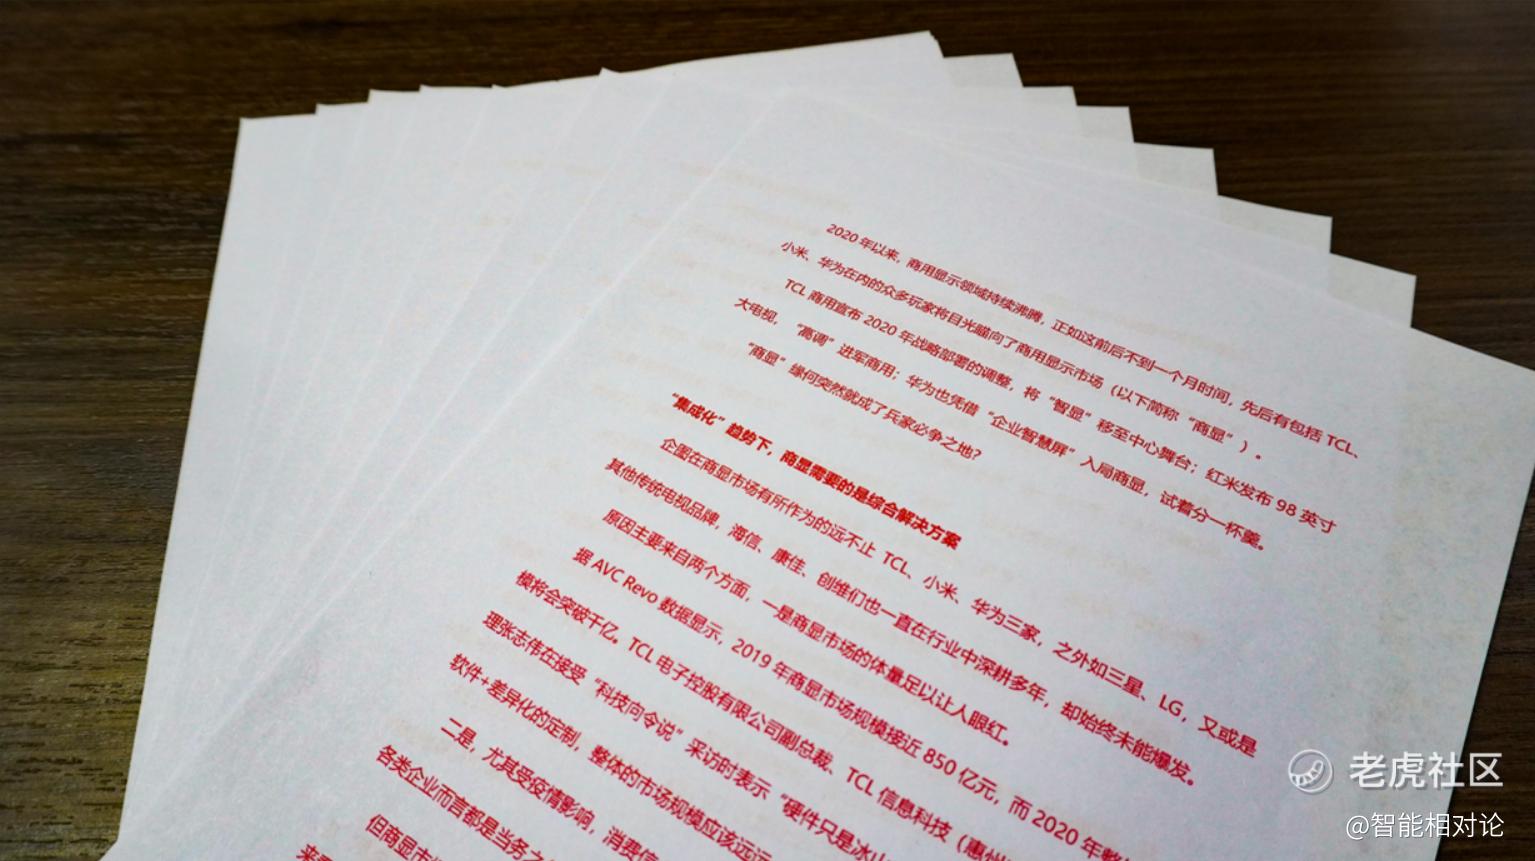 2020 年以来，商用显示领域持续沸腾，正如这前后不到一个月时间，先后有包括 TCL、
小米、华为在内的众多玩家将目光瞄向了商用显示市场（以下简称“商显”）。
TCL 商用宣布 2020 年战略部署的调整，将“智显”移至中心舞台；红米发布 98 英寸
大电视，“高调”进军商用；华为也凭借“企业智慧屏”入局商显，试着分一杯羹。
“商显”缘何突然就成了兵家必争之地？
“集成化”趋势下，商显需要的是综合解决方案
企图在商显市场有所作为的远不止 TCL、小米、华为三家，之外如三星、LG，又或是
其他传统电视品牌，海信、康佳、创维们也一直在行业中深耕多年，却始终未能爆发。
原因主要来自两个方面，一是商显市场的体量足以让人眼红。
据 AVC Revo 数据显示，2019 年商显市场规模接近 850 亿元，而 2020 年整
模将会突破千亿。TCL 电子控股有限公司副总裁、TCL 信息科技（惠州
理张志伟在接受“科技向令说”采访时表示“硬件只是冰山
软件+差异化的定制，整体的市场规模应该远远
二是，尤其受疫情影响，消费
各类企业而言都是当务之
但商显市
老虎社区
@智能相对论